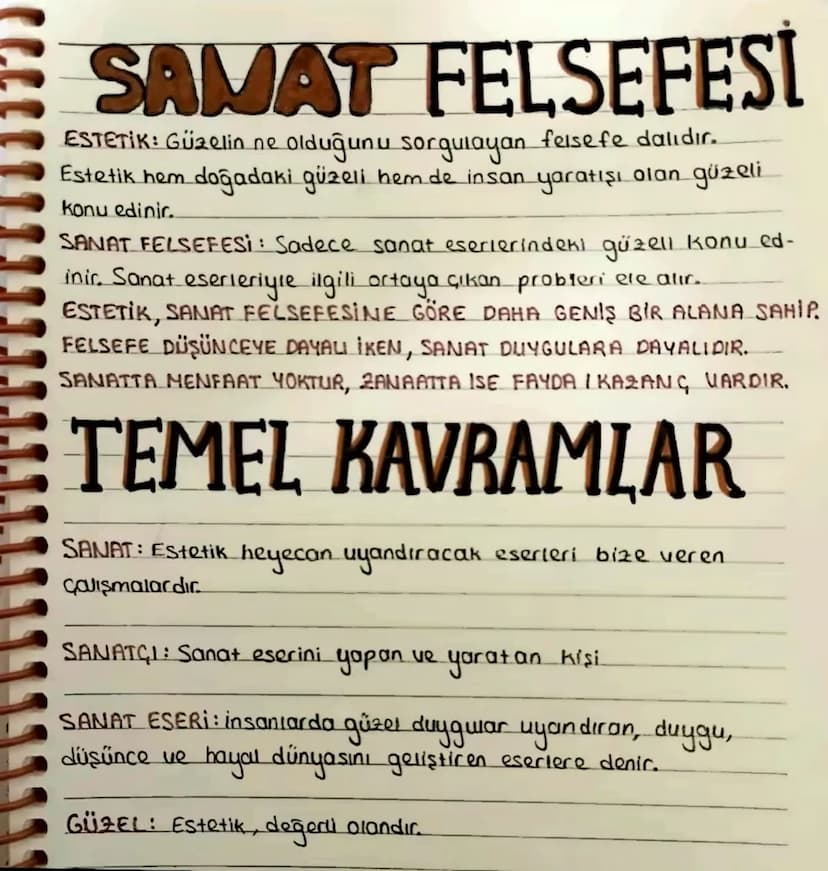 SANAT FELSEFESİ
ESTETİK: Güzelin ne olduğunu sorgulayan felsefe dalıdır.
Estetik hem doğadaki güzeli hem de insan yaratışı olan güzeli
konu edinir.
SANAT FELSEFESİ: Sadece sanat eserlerindeki güzeli konu ed-
inir. Sanat eserleriyle ilgili ortaya çıkan probleri ele alır.
ESTETİK, SANAT FELSEFESİNE GÖRE DAHA GENİŞ BİR ALANA SAHİP.
FELSEFE DÜŞÜNCEYE DAYALI İKEN, SANAT DUYGULARA DAYALIDIR.
SANATTA MENFAAT YOKTUR, ZANAATTA İSE FAYDA / KAZANÇ VARDIR.
TEMEL KAVRAMLAR
SANAT: Estetik heyecan uyandıracak eserleri bize veren
çalışmalardır.
SANATÇI: Sanat eserini yapan ve yaratan kişi
SANAT ESERİ: insanlarda güzel duygular uyandıran, duygu,
düşünce ve hayal dünyasını geliştiren eserlere denir.
GÜZEL: Estetik, değerli olandır.